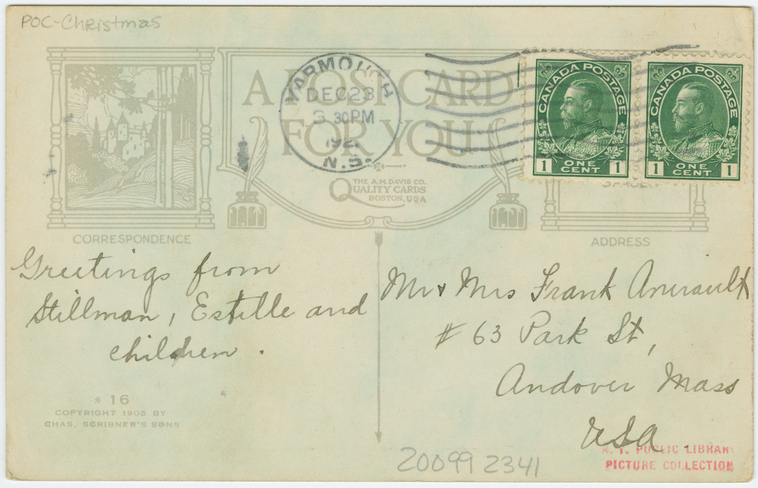 POC-Christmas
A POSTCARD
FOR YOU
YARMOUTH
DEC 23
3 30 PM
192
N.S.
CANADA POSTAGE
1 ONE CENT 1
CANADA POSTAGE
1 ONE CENT 1
THE A.M. DAVIS CO.
QUALITY CARDS
BOSTON, USA
CORRESPONDENCE
ADDRESS
Greetings from
Stillman, Estille and
children.
Mr & Mrs Frank
# 63 Park St,
Andover Mass
USA
# 16
COPYRIGHT 1905 BY
CHAS. SCRIBNER'S SONS
20099 2341
N. Y. PUBLIC LIBRARY
PICTURE COLLECTION